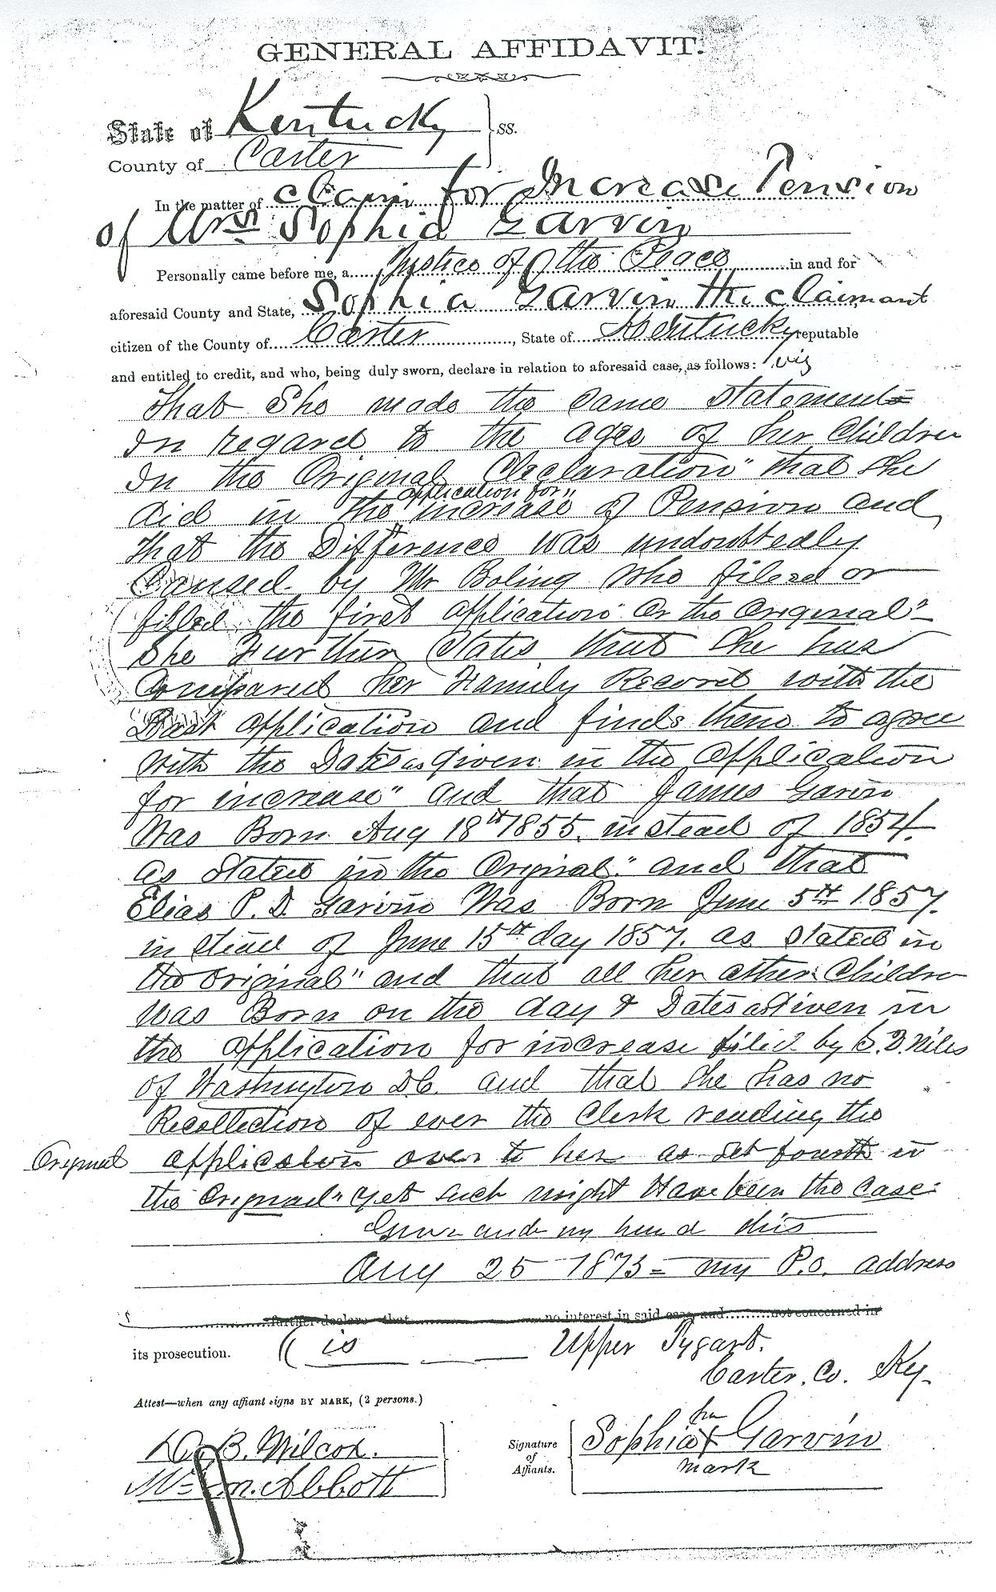 GENERAL AFFIDAVIT.
State of Kentucky } ss.
County of Carter
In the matter of claim for Increase Pension
of Mrs Sophia Garvin
Personally came before me, a Justice of the Peace in and for
aforesaid County and State, Sophia Garvin the Claimant
citizen of the County of Carter, State of Kentucky reputable
and entitled to credit, and who, being duly sworn, declare in relation to aforesaid case, as follows: viz
That She made the same Statements
In regard to the ages of her Children
In the Original Declaration" that she
application for"
did in the increase of Pension and
That the Difference was undoubtedly
Caused by Mr Boling who filed or
filled the first application Or the Original"
She Further States that She has
Compared her Family Record with the
Last application and finds them to agree
With the Dates as given in the application
for increase" and that James Garvin
Was Born Aug 18th 1855. instead of 1854.
as Stated in the Original." and that
Elias P. D. Garvin Was Born June 5th 1857.
in stead of June 15th day 1857. as Stated in
the original" and that all her other Children
Was Born on the day & Dates as Given in
the application for increase filed by C. D. Niles
of Washington DC. and that She has no
Recollection of ever the Clerk reading the
Original application over to her as Set fourth in
the Original" yet such might Have been the case.
Given under my hand this
Aug 25 1873 = my P.O. address
further declare that no interest in said case, and not concerned in
its prosecution. (is Upper Tygart.
Carter. Co. Ky.
Attest—when any affiant signs BY MARK, (2 persons.)
B. Wilcox.
Wm. Abbott
Signature of Affiants.
her
Sophia X Garvin
mark